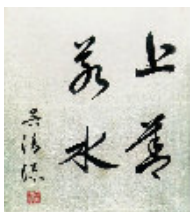 上善
若水
吴清源